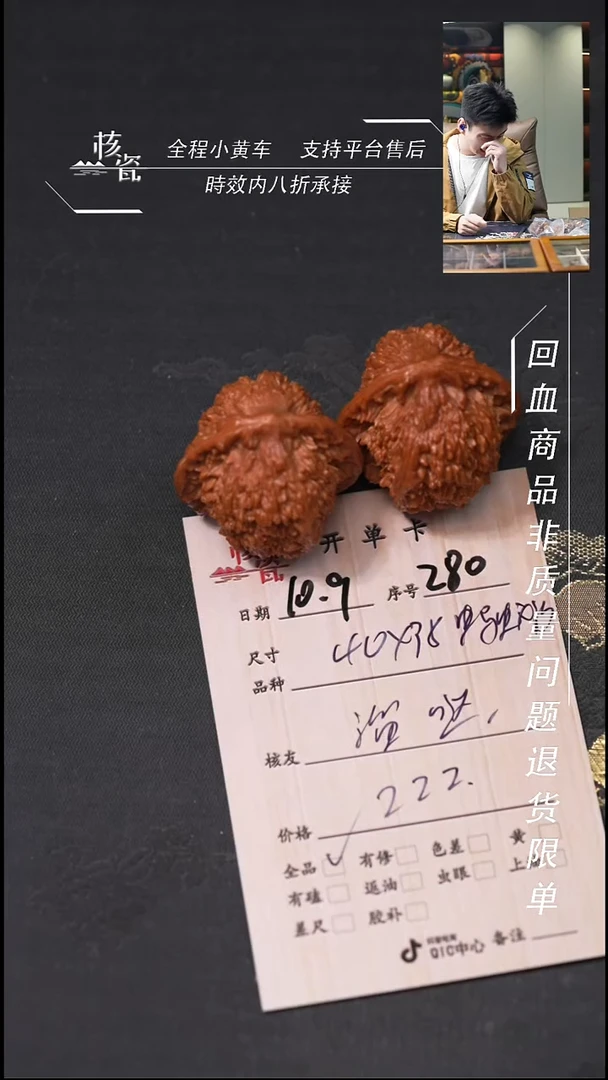 核瓷
全程小黄车 支持平台售后
時效内八折承接
回血商品非质量问题退货限单
核瓷
开单卡
日期 10.9 序号 280
尺寸 40X38
品种
核友
价格 222.
全品 有修 色差 黄
有磕 返油 虫眼 上
差尺 胶补
QIC中心 备注